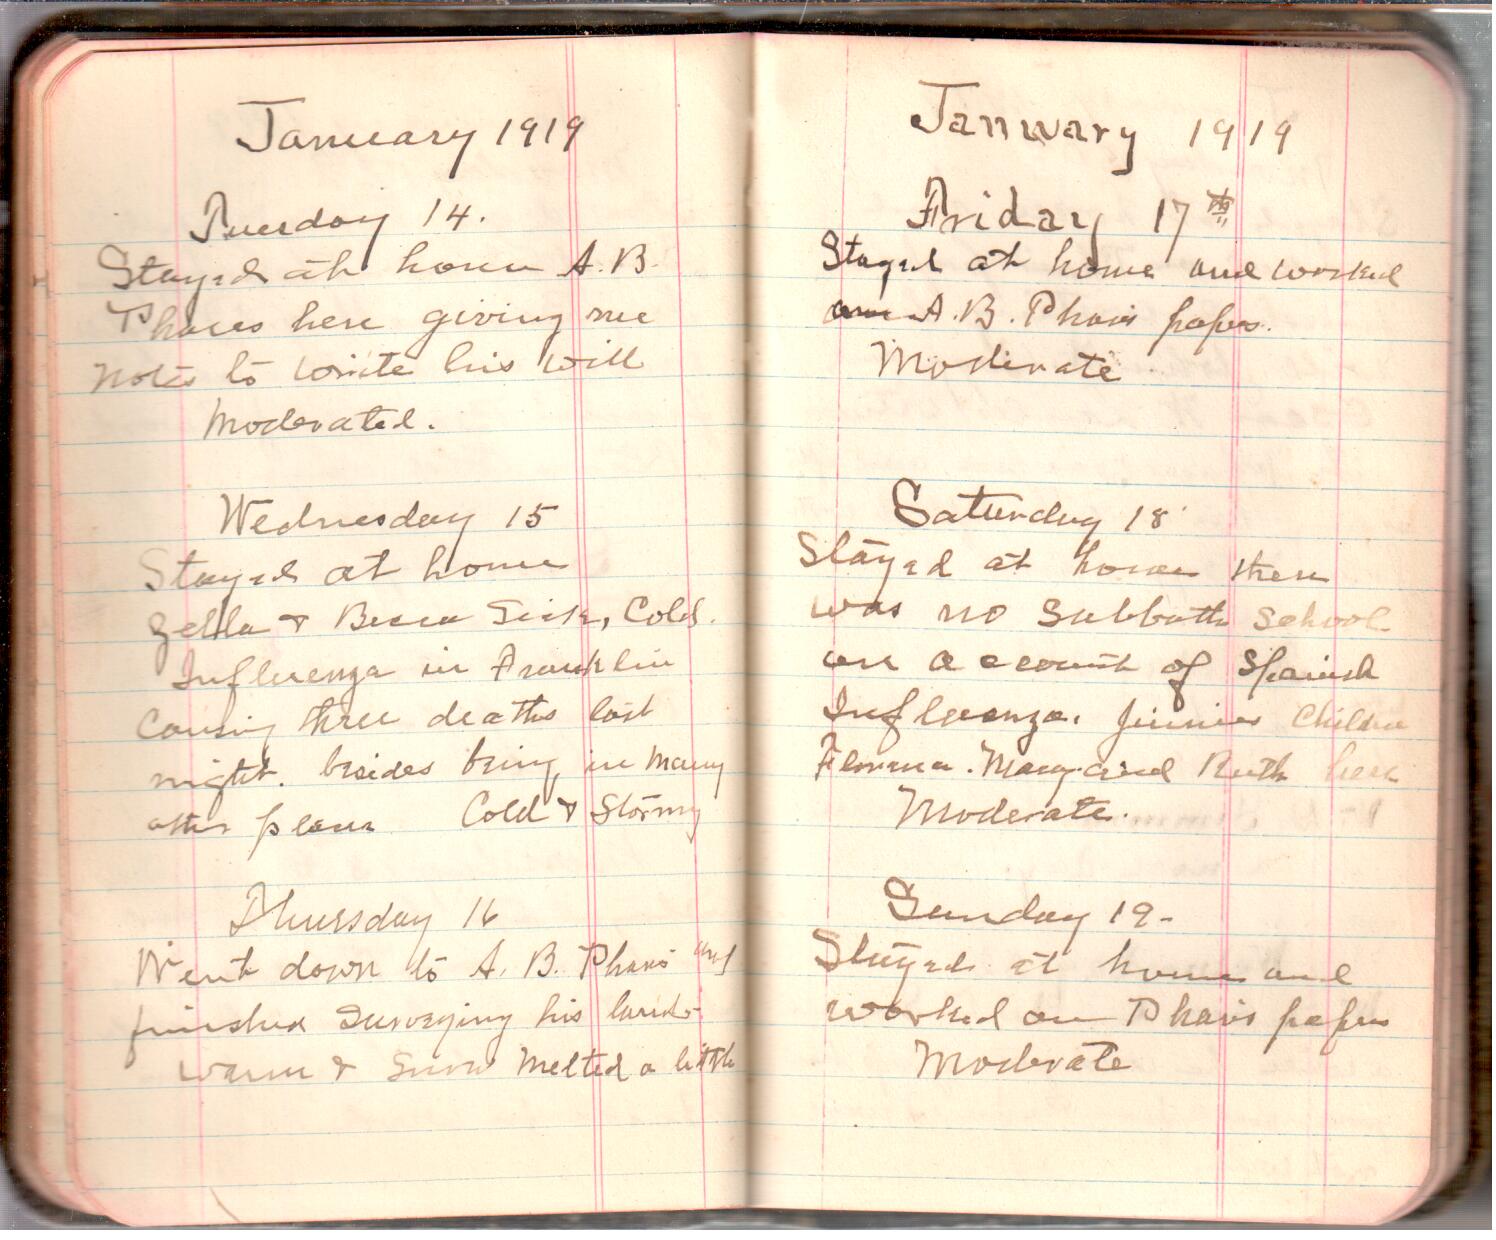 January 1919
Tuesday 14.
Stayed at home A.B.
Phares here giving me
notes to write his will
Moderated.
Wednesday 15
Stayed at home
Zella & Becca Sick, Cold.
Influenza in Franklin
Causing three deaths last
night. besides being in many
other places Cold & Stormy
Thursday 16
Went down to A. B. Phares and
finished Surveying his land.
warm & Snow Melted a little
January 1919
Friday 17th
Stayed at home and worked
on A.B. Phares papers.
Moderate
Saturday 18
Stayed at home there
was no Sabbath School
on account of Spanish
Influenza. Jinnies Children
Mary and Ruth here
Moderate.
Sunday 19-
Stayed at home and
worked on Phares papers
Moderate